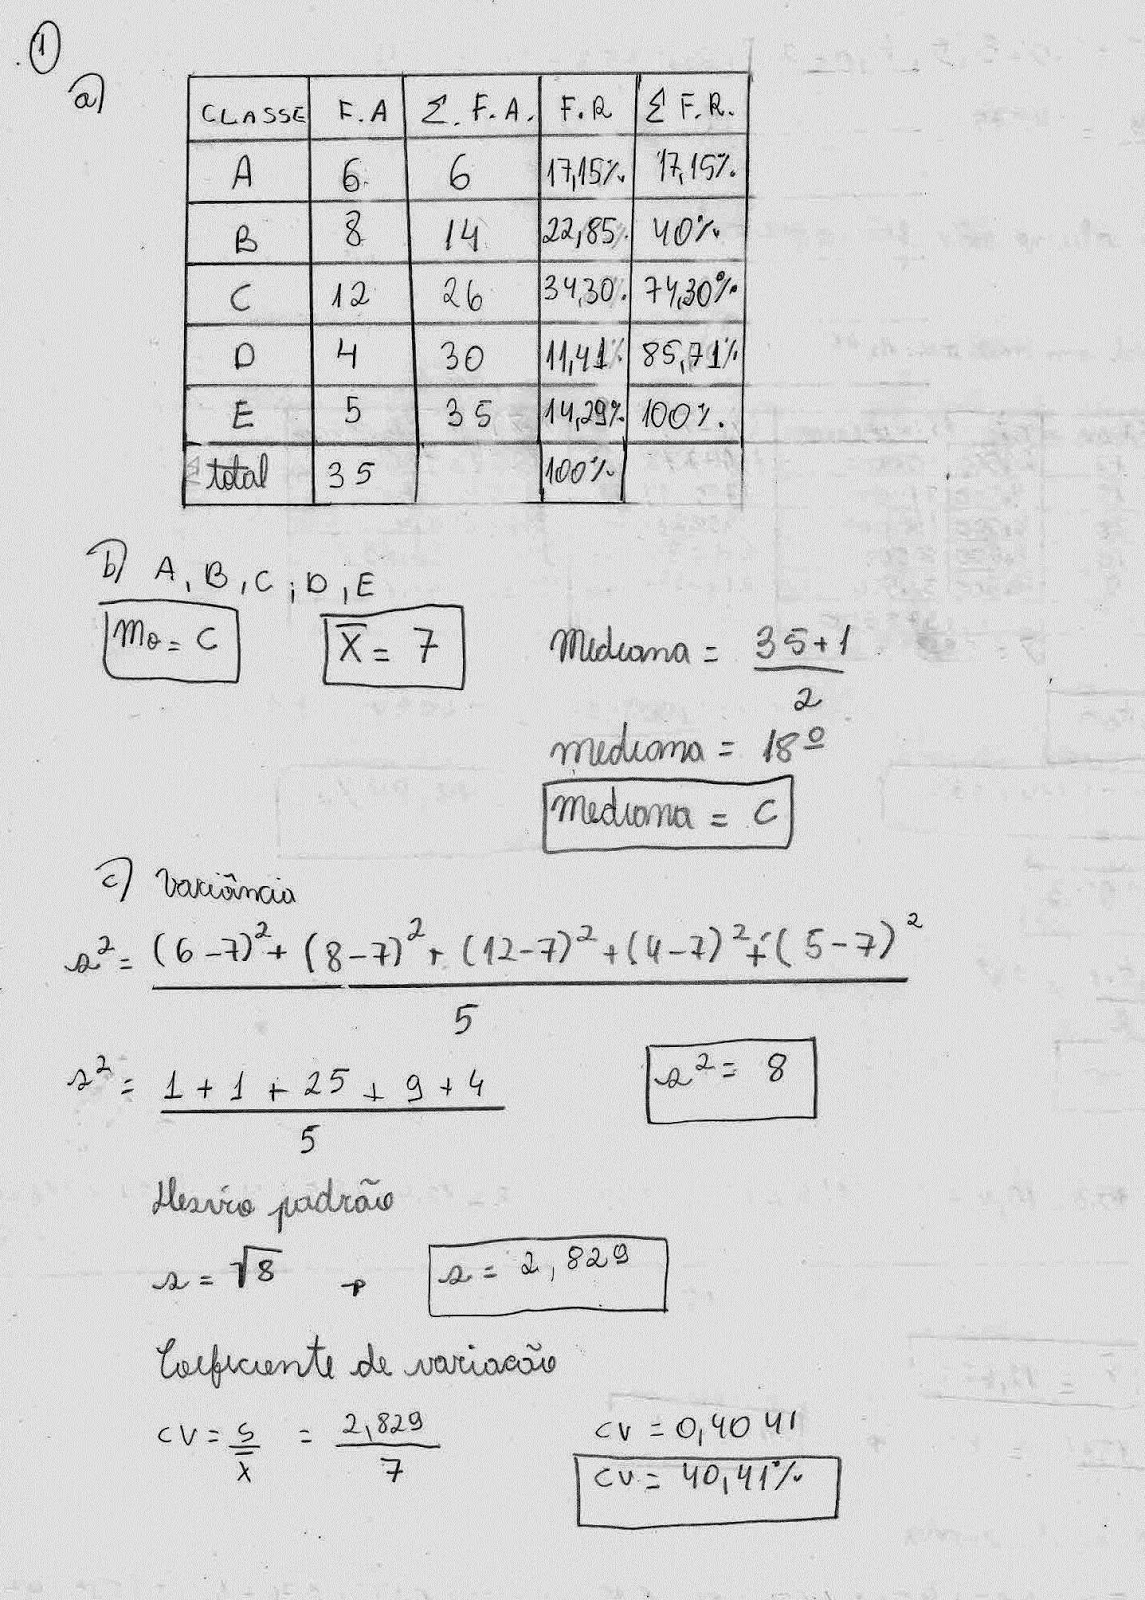 1
a)
CLASSE F.A Σ.F.A. F.R Σ F.R.
A 6 6 17,15% 17,15%
B 8 14 22,85% 40%
C 12 26 34,30% 74,30%
D 4 30 11,41% 85,71%
E 5 35 14,29% 100%
total 35 100%
b) A, B, C, D, E
Mo = C
X̅ = 7
Mediana = 35+1 / 2
mediana = 18º
Mediana = C
c) Variância
s² = (6-7)² + (8-7)² + (12-7)² + (4-7)² + (5-7)² / 5
s² = 1 + 1 + 25 + 9 + 4 / 5
s² = 8
Desvio padrão
s = √8 → s = 2,829
Coeficiente de variacão
CV = S / X̅ = 2,829 / 7
CV = 0,4041
CV = 40,41%